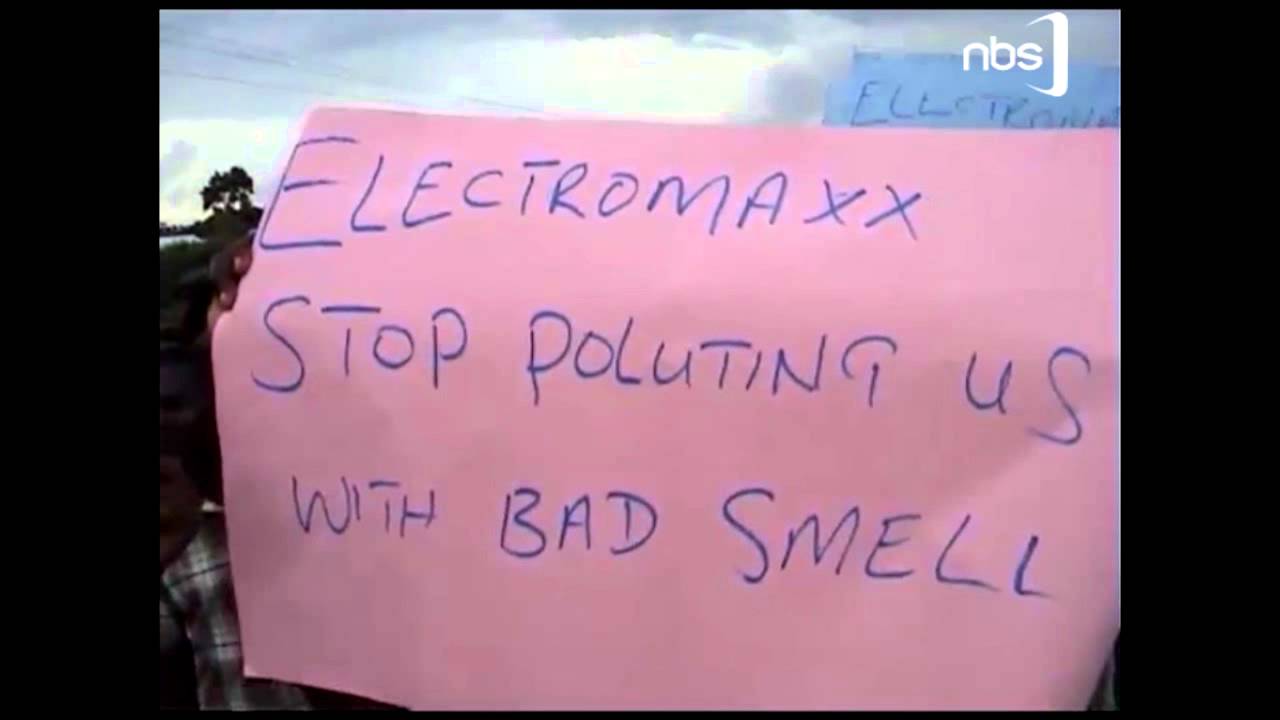 nbs
ELECTROMAXX
STOP POLUTING US
WITH BAD SMELL